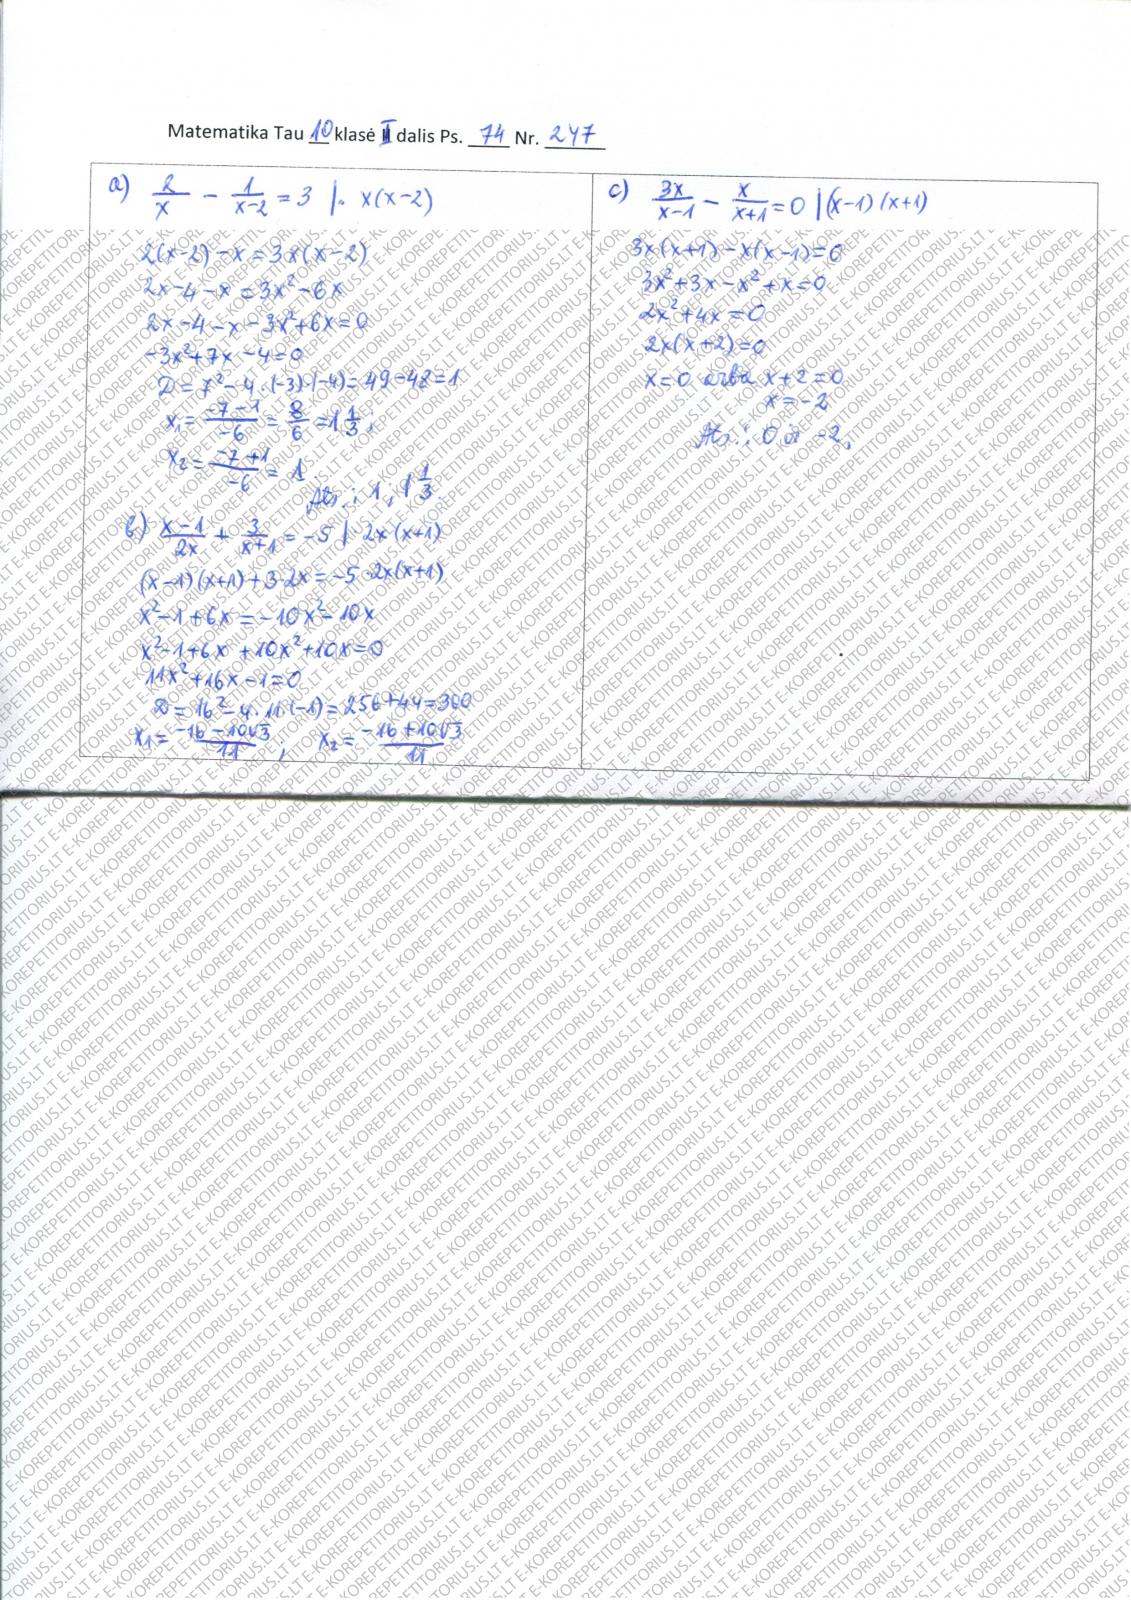 Matematika Tau 10 klasė II dalis Ps. 74 Nr. 247
a) 2/x - 1/(x-2) = 3 |· x(x-2)
2(x-2)-x=3x(x-2)
2x-4-x=3x²-6x
2x-4-x-3x²+6x=0
-3x²+7x-4=0
D=7²-4·(-3)·(-4)=49-48=1
x₁=(-7-1)/-6=8/6=1 1/3;
x₂=(-7+1)/-6=1
Ats.: 1; 1 1/3.
b) (x-1)/2x + 3/(x+1) = -5 | 2x(x+1)
(x-1)(x+1)+3·2x=-5·2x(x+1)
x²-1+6x=-10x²-10x
x²-1+6x+10x²+10x=0
11x²+16x-1=0
D=16²-4·11·(-1)=256+44=300
x₁=(-16-10√3)/11; x₂=(-16+10√3)/11
c) 3x/(x-1) - x/(x+1) = 0 |(x-1)(x+1)
3x(x+1)-x(x-1)=0
3x²+3x-x²+x=0
2x²+4x=0
2x(x+2)=0
x=0 arba x+2=0
x=-2
Ats.: 0 ir -2.
E-KOREPETITORIUS.LT